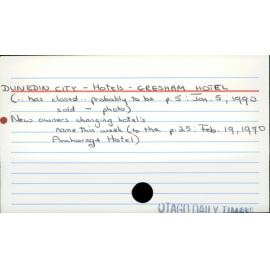 DUNEDIN CITY - Hotels - GRESHAM HOTEL
(.. has closed.. probably to be p.5: Jan. 5, 1990
sold - photo)
New owners changing hotel's
name this week (to the p.25: Feb. 19, 1990
Anchorage Hotel)
OTAGO DAILY TIMES